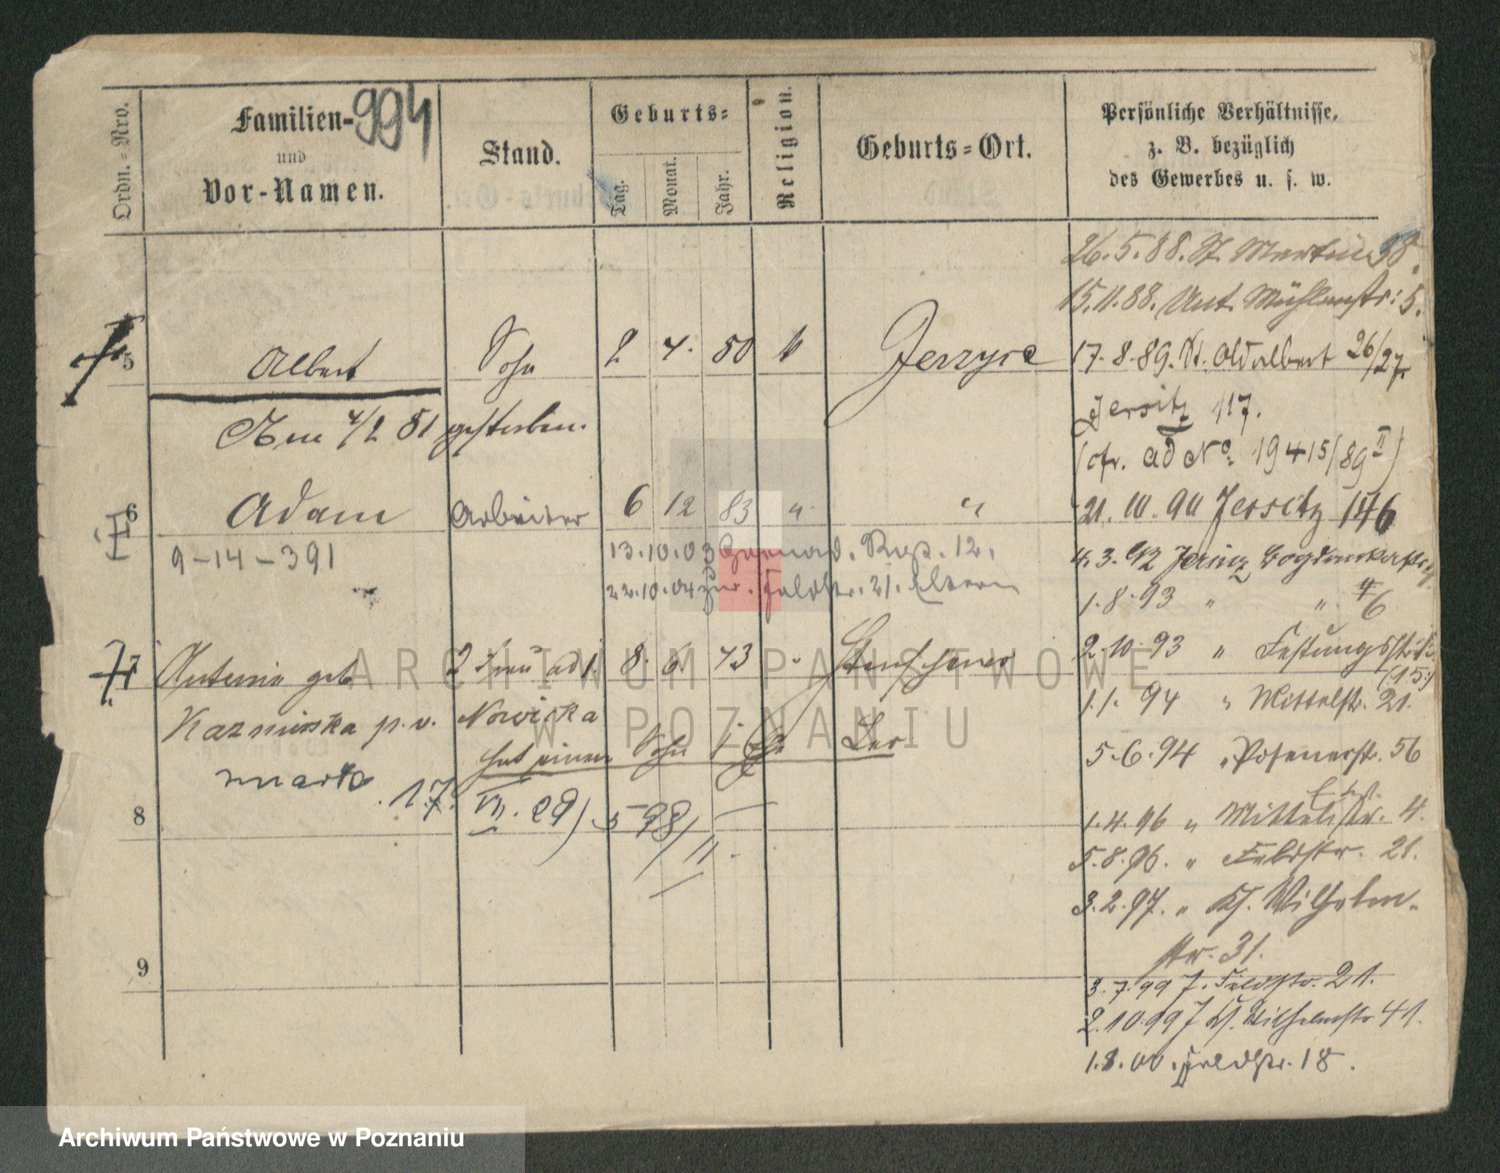 Ordn.=Nro.
Familien-
und
Vor-Namen.
994
Stand.
Geburts=
Tag.
Monat.
Jahr.
Religion.
Geburts=Ort.
Persönliche Verhältnisse,
z. B. bezüglich
des Gewerbes u. s. w.
26.5.88. St. Martin 58.
15.11.88. Mühlenstr: 5.
5 Albert Sohn 2 4. 80 k Jerzyce
17.8.89. St. Adalbert 26/27
Am 4/2 81 gestorben.
Jersitz 117.
(cfr. ad No. 19415/89 II)
6 Adam Arbeiter 6 12 83 " "
21.10.90 Jersitz 146
9-14-391
13.10.03 12.
22.10.04 Feldstr. 21. Eltern
4.3.92
1.8.93 " " 6
7 Antonie geb. 2 Frau ad 1. 8. 6. 73 "
2.10.93 " Festungsstr.
(15.)
Kazmierska p. v. Nowicka
1.1. 94 " Mittelstr. 21.
hat einen Sohn
5.6.94 " Posenerstr. 56
17. VII. 29) 5-98/11.
8
1.4.96 " Mittelstr. 4.
5.8.96. " Feldstr. 21.
3.2.97. " Kl. Wilhelm-
str. 31.
9
3.7.99 J. Feldstr. 21.
2.10.99 J Kl. Wilhelmstr 41.
1.8.00. Feldstr. 18.
ARCHIWUM PAŃSTWOWE
W POZNANIU
Archiwum Państwowe w Poznaniu